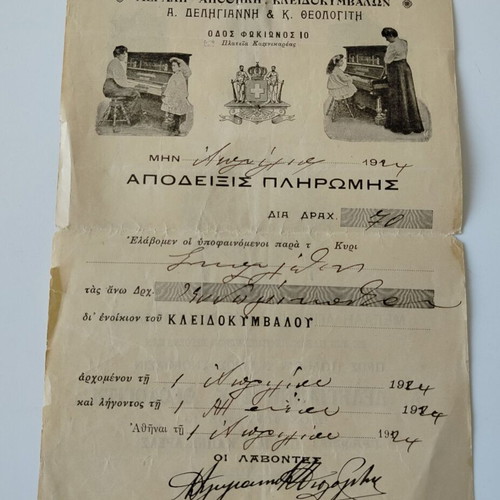 ΚΛΕΙΔΟΚΥΜΒΑΛΩΝ
Α. ΔΕΛΗΓΙΑΝΝΗ & Κ. ΘΕΟΛΟΓΙΤΗ
ΟΔΟΣ ΦΩΚΙΩΝΟΣ 10
Πλατεῖα Καπνικαρέας
ΜΗΝ Ἀπρίλιος 1924
ΑΠΟΔΕΙΞΙΣ ΠΛΗΡΩΜΗΣ
ΔΙΑ ΔΡΑΧ. 70
Ἐλάβομεν οἱ ὑποφαινόμενοι παρὰ τ Κυρι
τὰς ἄνω Δρχ
δι' ἐνοίκιον τοῦ ΚΛΕΙΔΟΚΥΜΒΑΛΟΥ
ἀρχομένου τῇ 1 Ἀπριλίου 1924
καὶ λήγοντος τῇ 1 Μαΐου 1924
Ἀθῆναι τῇ 1 Ἀπριλίου 1924
ΟΙ ΛΑΒΟΝΤΕΣ